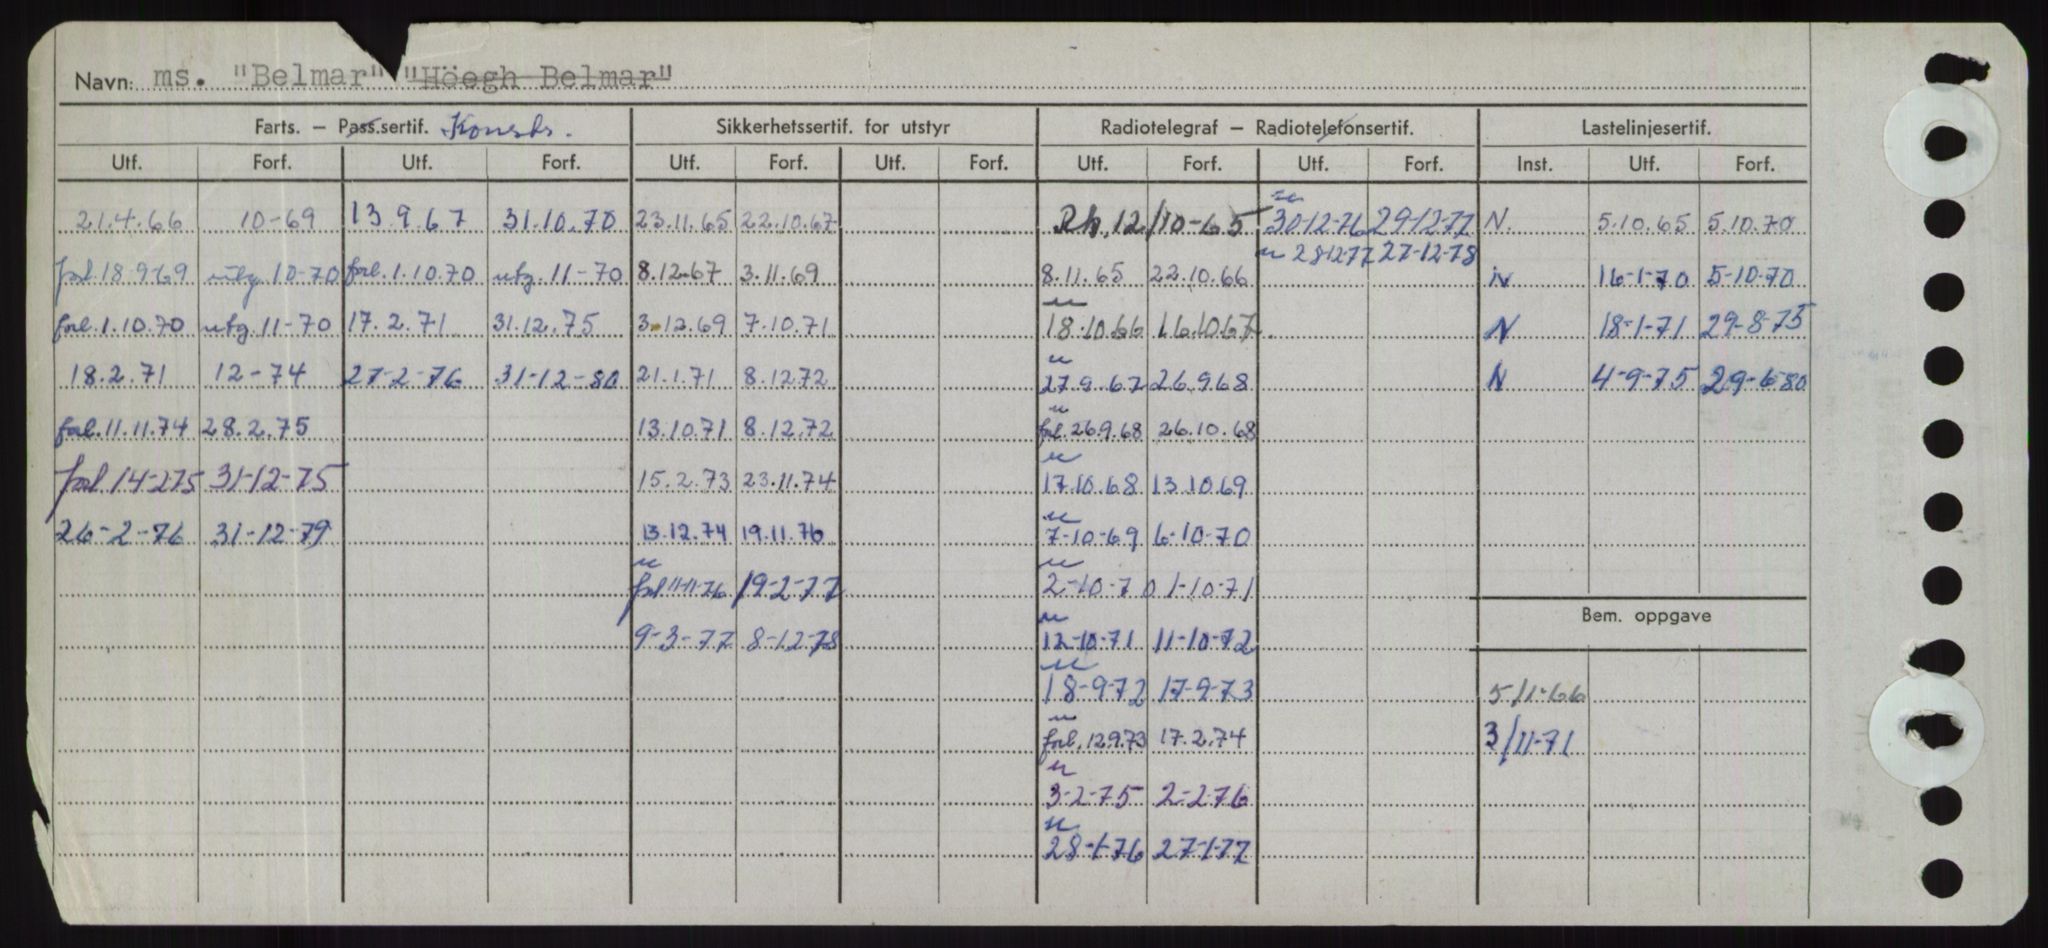 Navn: ms. "Belmar" "Höegh Belmar"
Farts. – Pass.sertif. Konstr. Sikkerhetssertif. for utstyr Radiotelegraf – Radiotelefonsertif. Lastelinjesertif.
Utf. Forf. Utf. Forf. Utf. Forf. Utf. Forf. Utf. Forf. Utf. Forf. Inst. Utf. Forf.
21.4.66 10-69 13.9.67 31.10.70 23.11.65 22.10.67 Rh. 12/10-65 30-12-76 29-12-77 N. 5.10.65 5.10.70
n 28-12-77 27-12-78
forl. 18-9-69 utg. 10-70 forl. 1.10.70 utg. 11-70 8.12.67 3.11.69 8.11.65 22.10.66 N 16-1-70 5-10-70
forl. 1.10.70 utg. 11-70 17.2.71 31.12.75 3.12.69 7.10.71 18.10.66 16.10.67 N 18-1-71 29-8-75
18.2.71 12-74 27-2-76 31-12-80 21.1.71 8.12.72 27.9.67 26.9.68 N 4-9-75 29-6-80
forl. 11.11.74 28.2.75 13.10.71 8.12.72 forl. 26.9.68 26.10.68
forl 14-2-75 31-12-75 15.2.73 23.11.74 17.10.68 13.10.69
26-2-76 31-12-79 13.12.74 19.11.76 7-10-69 6-10-70
forl 11-11-76 19-2-77 2-10-70 1-10-71
Bem. oppgave
9-3-77 8-12-78 12-10-71 11-10-72
18-9-72 17-9-73 5/11-66
forl. 12.9.73 17.2.74 3/11-71
3-2-75 2-2-76
28-1-76 27-1-77